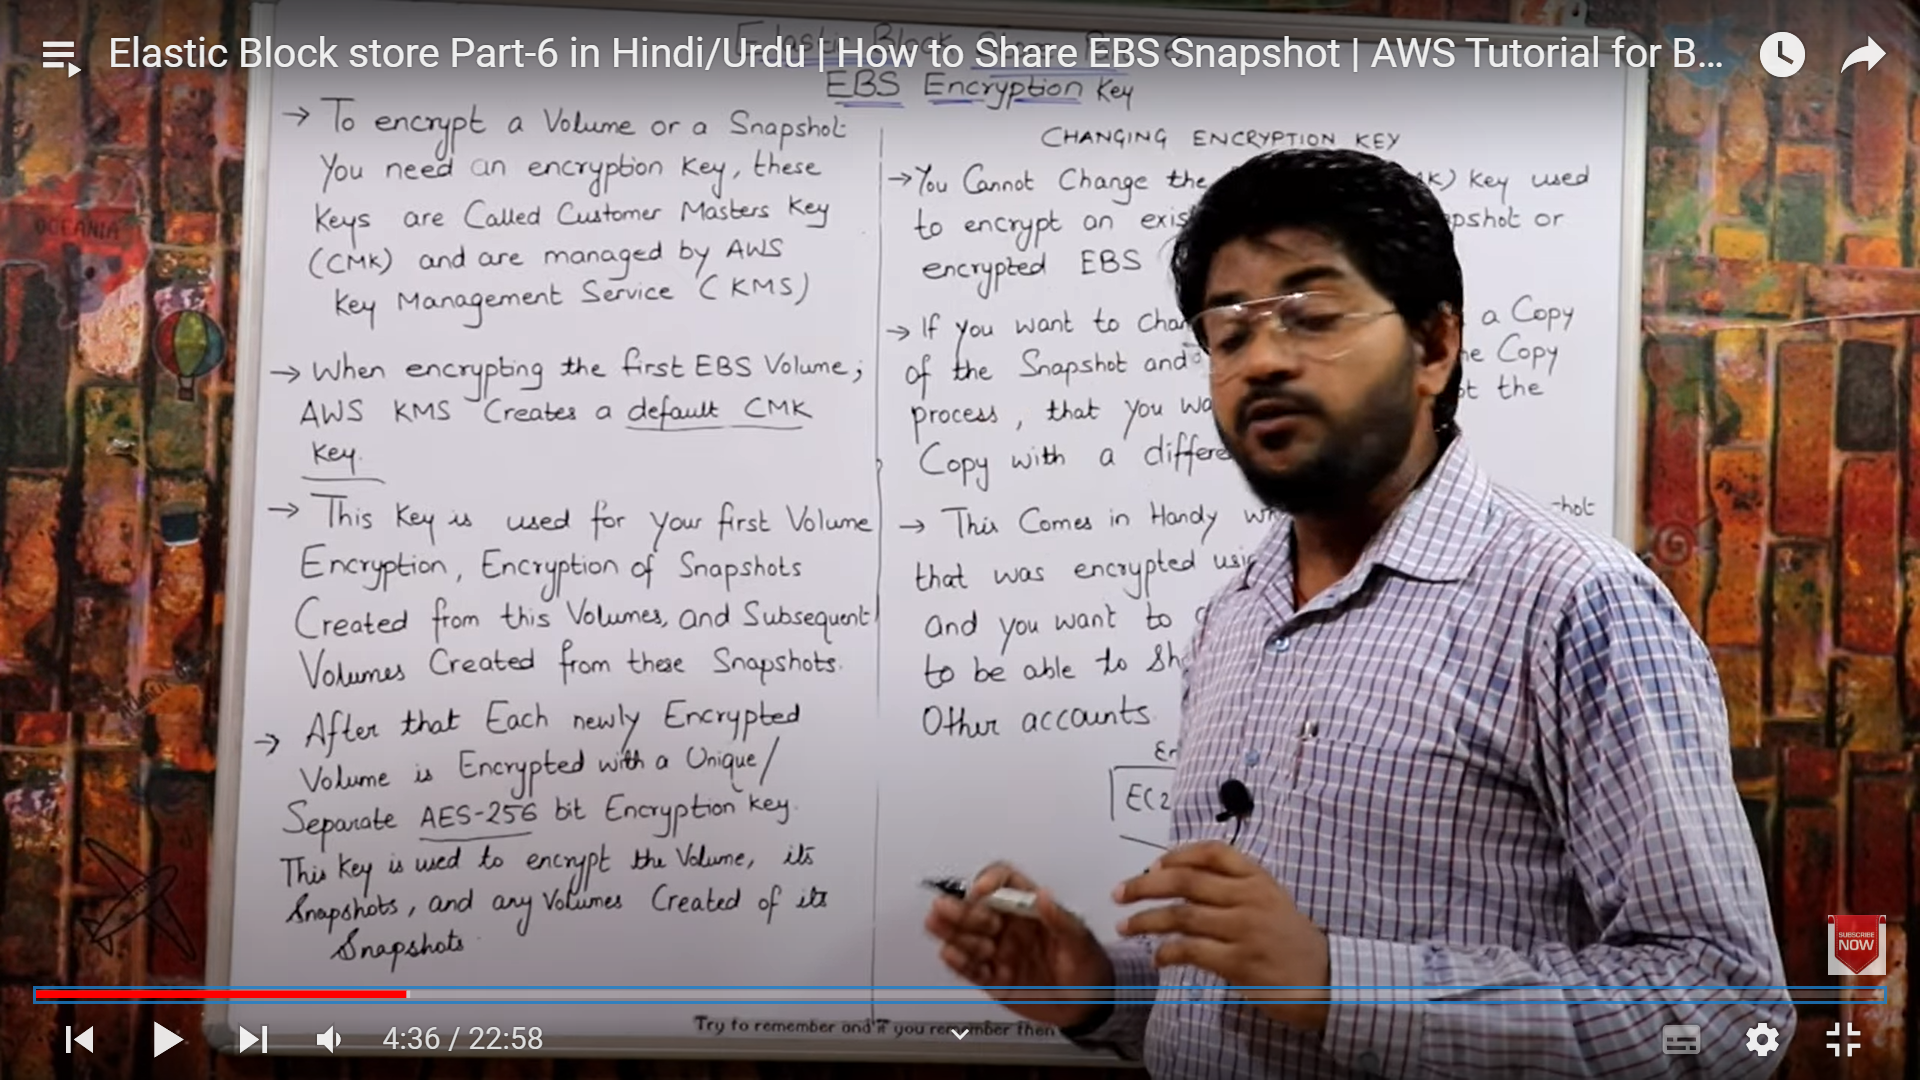 Elastic Block store Part-6 in Hindi/Urdu | How to Share EBS Snapshot | AWS Tutorial for B...
EBS Encryption Key
→ To encrypt a Volume or a Snapshot
You need an encryption key, these
Keys are Called Customer Masters Key
(CMK) and are managed by AWS
Key Management Service (KMS)
→ When encrypting the first EBS Volume;
AWS KMS Creates a default CMK
Key.
→ This Key is used for your first Volume
Encryption, Encryption of Snapshots
Created from this Volumes, and Subsequent
Volumes Created from these Snapshots.
→ After that Each newly Encrypted
Volume is Encrypted with a Unique/
Separate AES-256 bit Encryption key.
This Key is used to encrypt the Volume, its
Snapshots, and any Volumes Created of its
Snapshots.
CHANGING ENCRYPTION KEY
→ You Cannot Change the Key used
to encrypt an or
encrypted EBS
→ If you want to a Copy
of the Snapshot and Copy
process, that you the
Copy with a
→ This Comes in Handy
that was encrypted
and you want to
to be able to
Other accounts.
EC2
OCEANIA
Try to remember and if you remember then
SUBSCRIBE
NOW
4:36 / 22:58